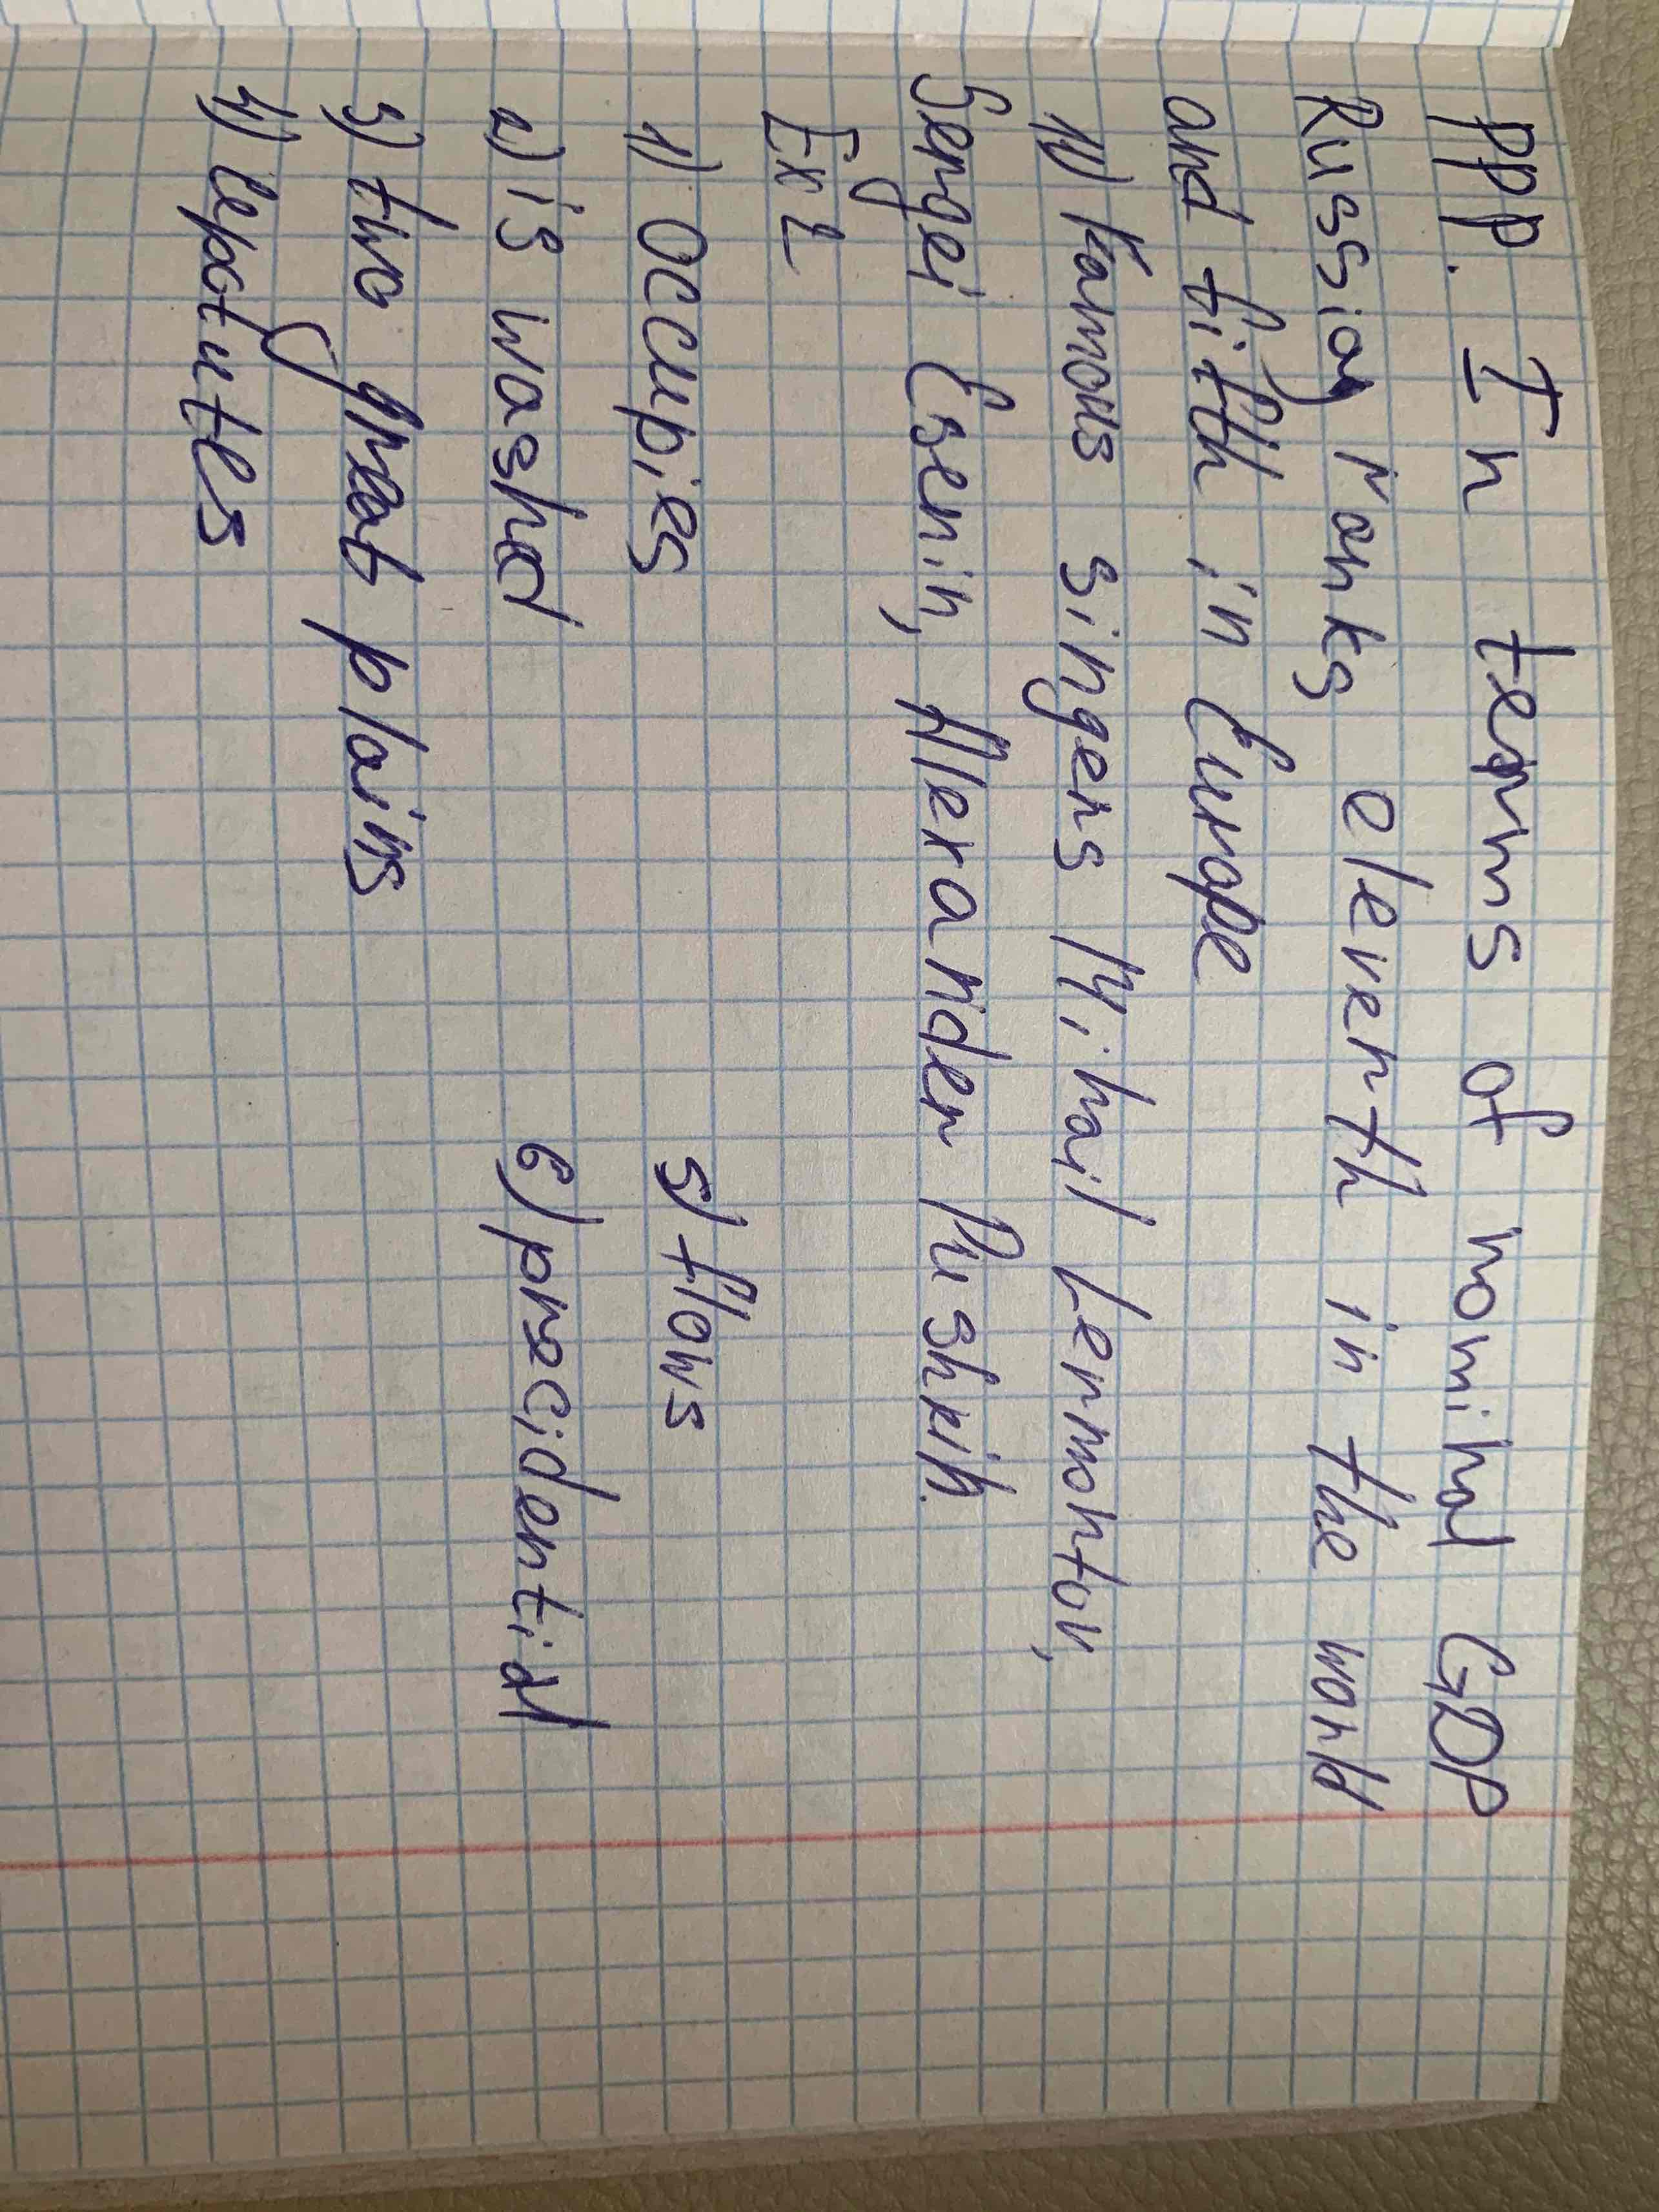 PPP. In terms of nominal GDP
Russian ranks eleventh in the world
and fifth in Europe
11) Famous singers Mihail Lermontov,
Sergei Esenin, Alexander Pushkin.
Ex 2
1) occupies
2) is washed
3) two great plains
4) depatutes
5) flows
6) precidential